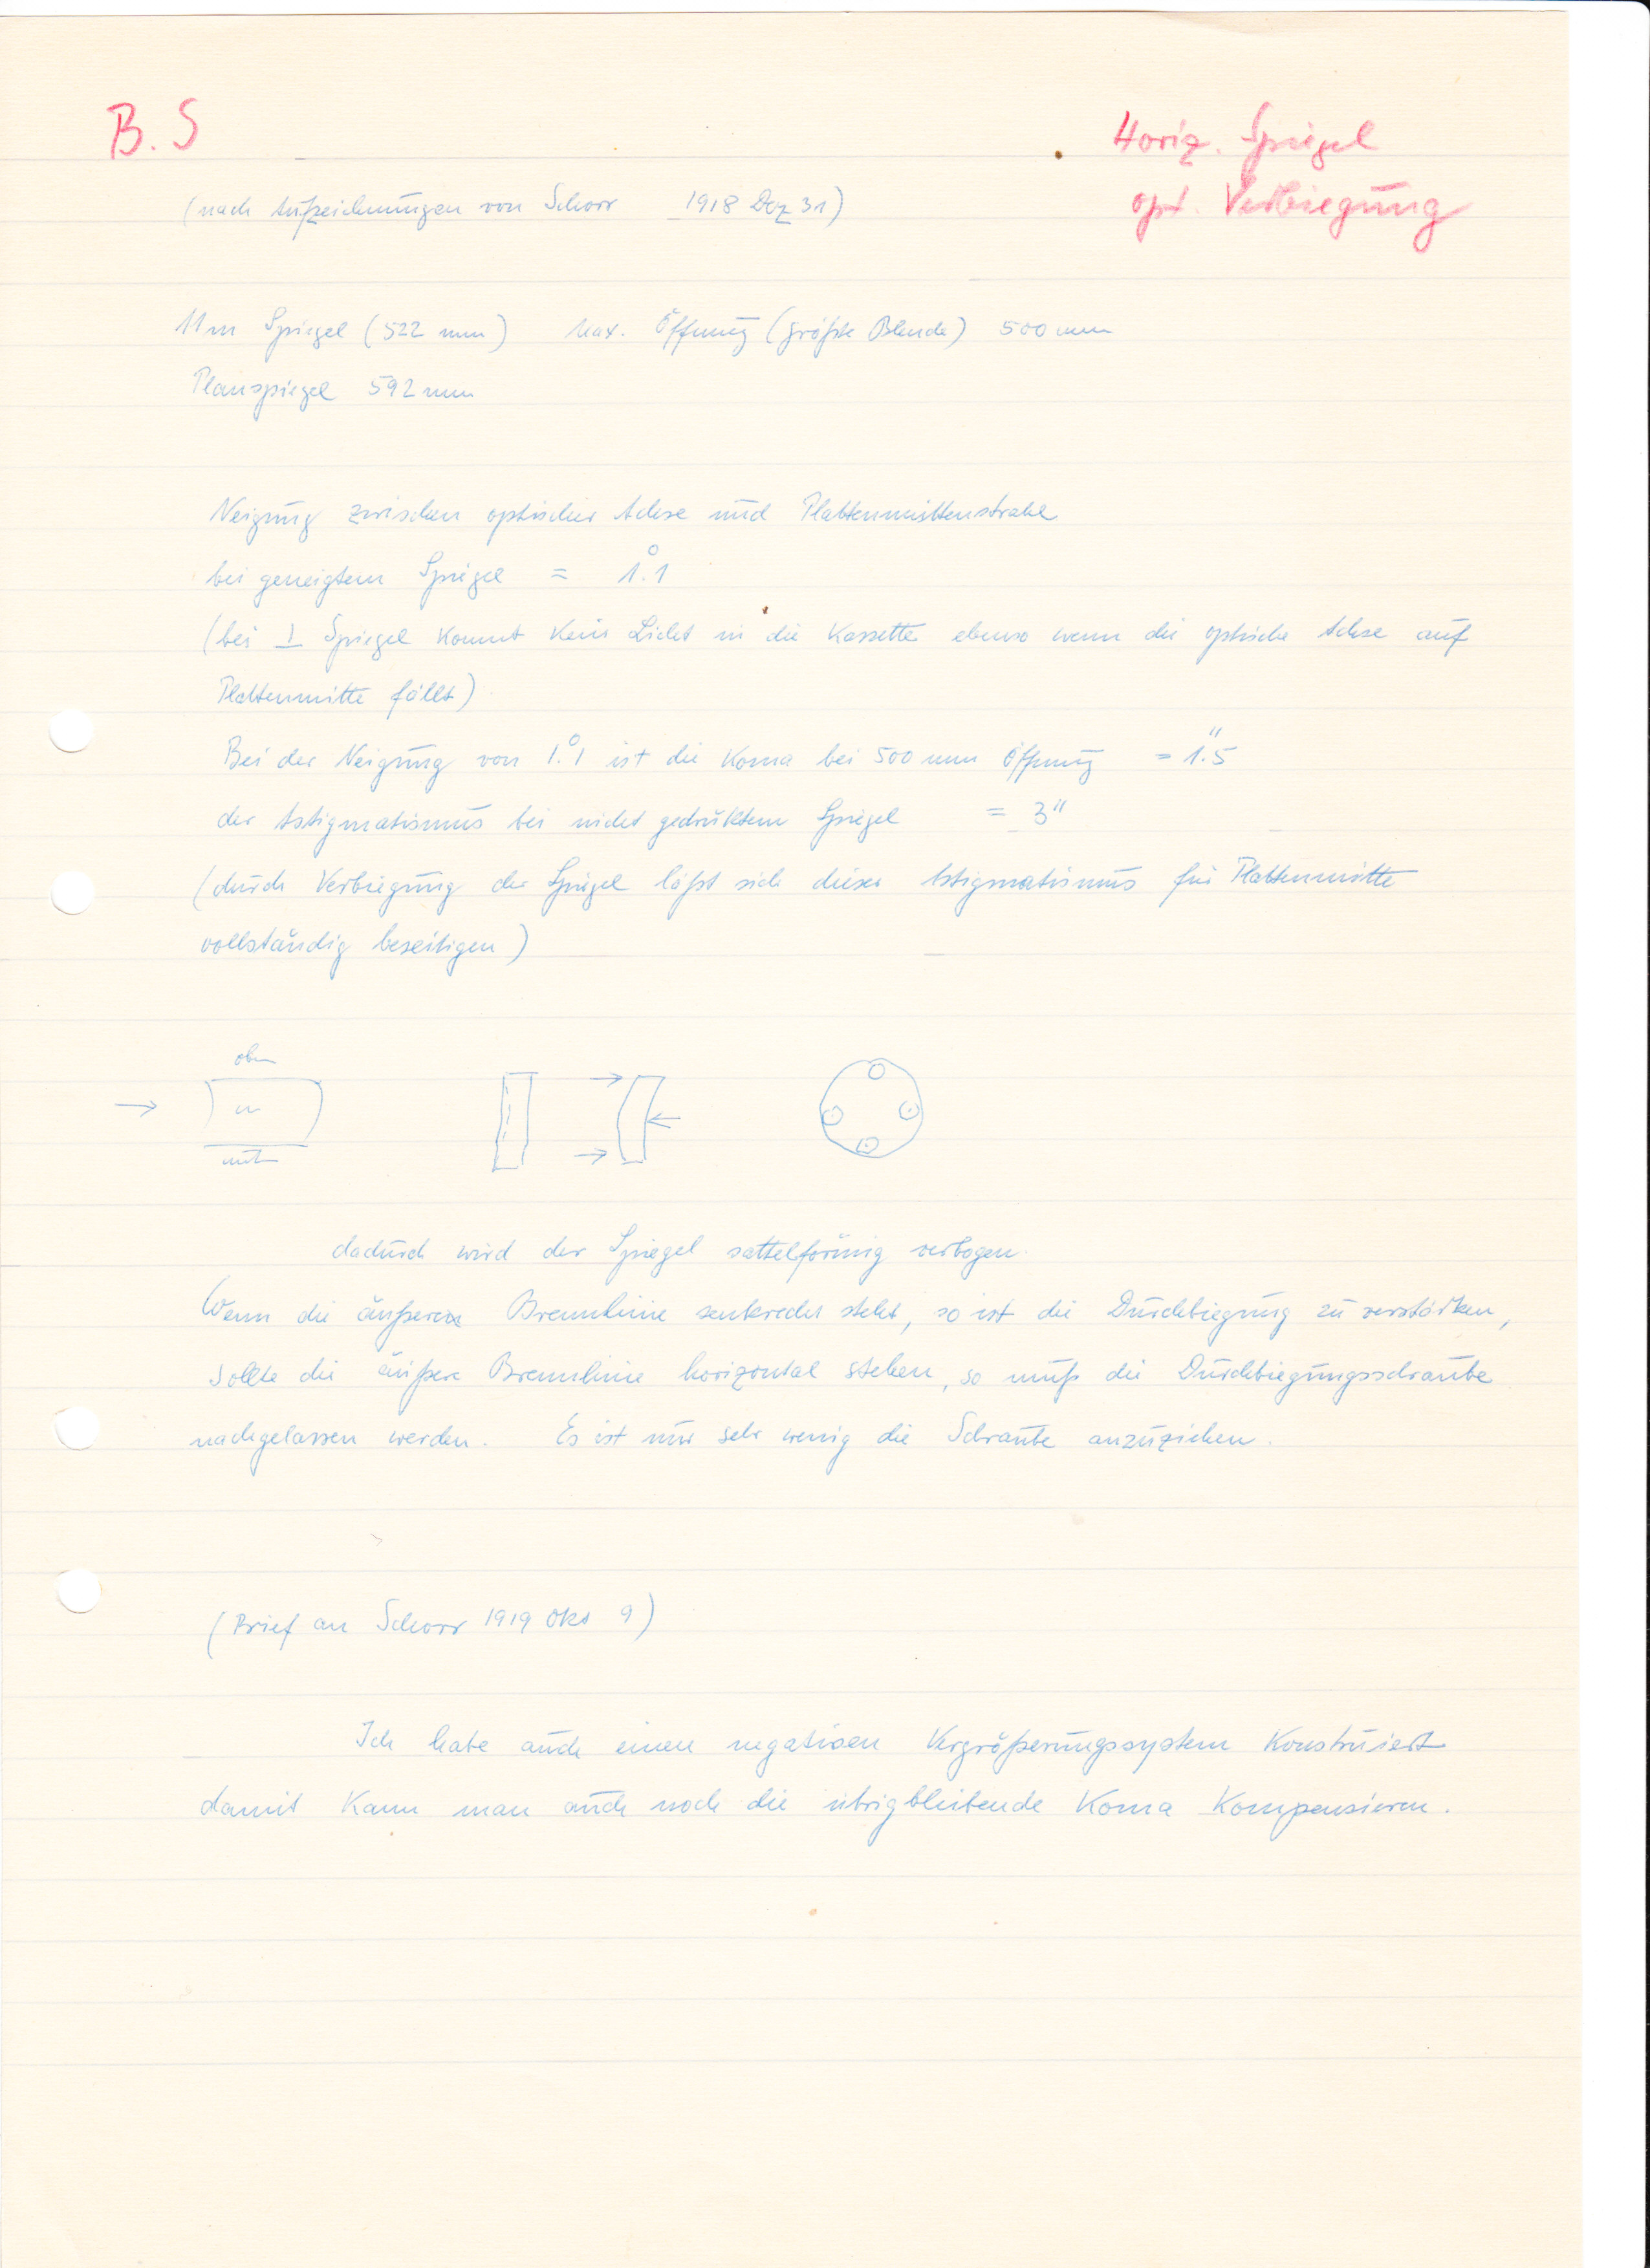 B. S
Horiz. Spiegel
opt. Verbiegung
(nach Aufzeichnungen von Schorr 1918 Dez 31)
11m Spiegel (522 mm) Max. Öffnung (größte Blende) 500 mm
Planspiegel 592 mm
Neigung zwischen optischer Achse und Plattenmittenstrahl
bei geneigtem Spiegel = 1°.1
(bei ⊥ Spiegel kommt kein Licht in die Kassette ebenso wenn die optische Achse auf
Plattenmitte fällt)
Bei der Neigung von 1°.1 ist die Koma bei 500 mm Öffnung = 1".5
der Astigmatismus bei nicht gedrücktem Spiegel = 3"
(durch Verbiegung der Spiegel läßt sich dieser Astigmatismus für Plattenmitte
vollständig beseitigen)
oben
dadurch wird der Spiegel sattelförmig verbogen.
Wenn die äußere Brennlinie senkrecht steht, so ist die Durchbiegung zu verstärken,
sollte die äußere Brennlinie horizontal stehen, so muß die Durchbiegungsschraube
nachgelassen werden. Es ist nur sehr wenig die Schraube anzuziehen.
(Brief an Schorr 1919 Okt 9)
Ich habe auch einen negativen Vergrößerungssystem konstruiert
damit kann man auch noch die übrigbleibende Koma kompensieren.